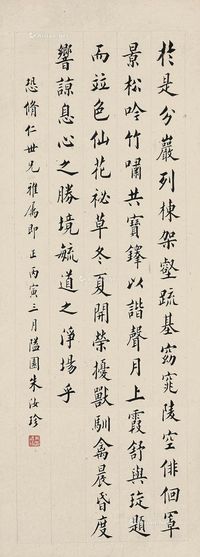 於是分巖列棟架壑疏基窈窕陵空俳佪罩
景松吟竹嘯共寶鐸以諧聲月上霞舒與琁題
而竝色仙花祕草冬夏開榮擾獸馴禽晨昏度
響諒息心之勝境毓道之淨場乎
恐脩仁世兄雅屬即正丙寅三月隘園朱汝珍